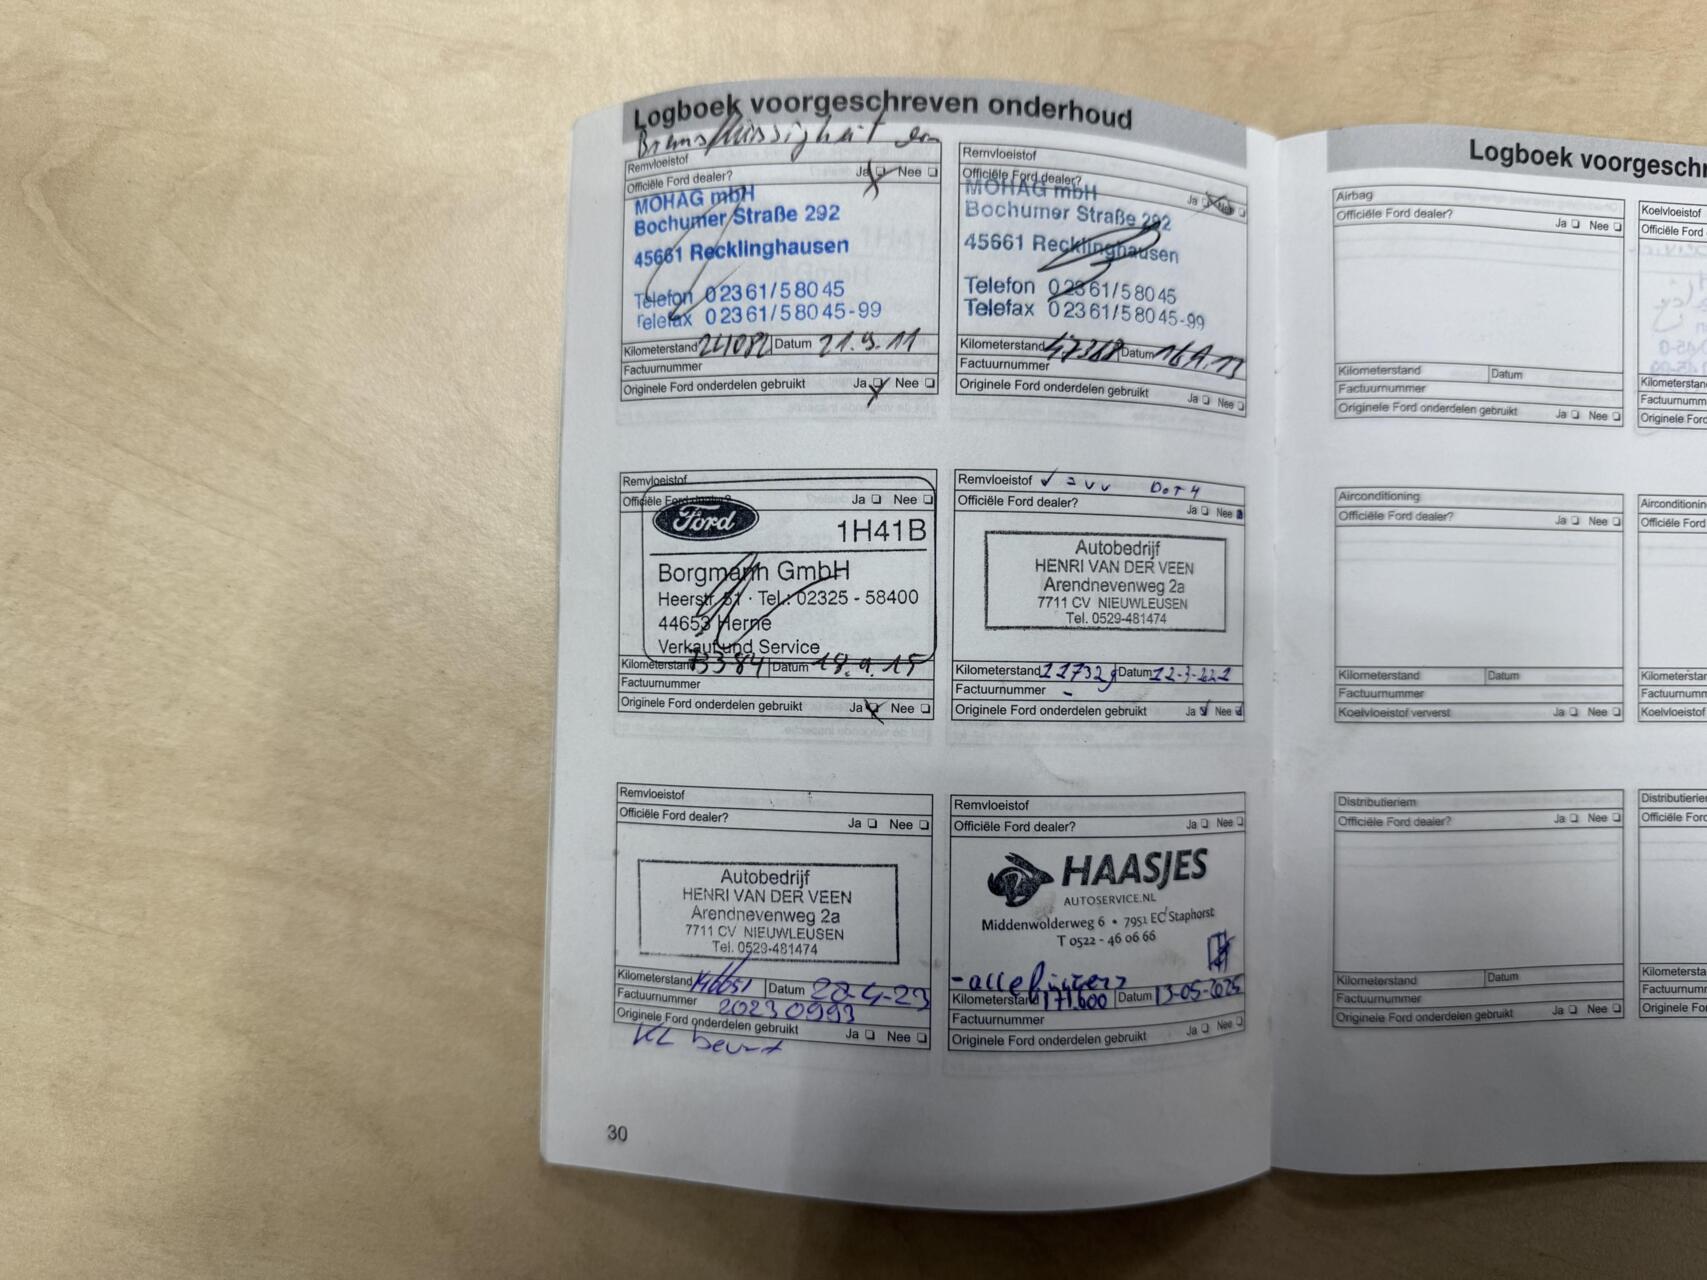 Logboek voorgeschreven onderhoud
Remvloeistof
Officiële Ford dealer? Ja Nee
MOHAG mbH
Bochumer Straße 292
45661 Recklinghausen
Telefon 02361/58045
Telefax 02361/58045-99
Kilometerstand 24082 Datum 21.9.11
Factuurnummer
Originele Ford onderdelen gebruikt Ja Nee
Remvloeistof
Officiële Ford dealer? Ja Nee
MOHAG mbH
Bochumer Straße 292
45661 Recklinghausen
Telefon 02361/58045
Telefax 02361/58045-99
Kilometerstand 47368 Datum
Factuurnummer
Originele Ford onderdelen gebruikt Ja Nee
Remvloeistof
Officiële Ford dealer? Ja Nee
Ford
1H41B
Borgmann GmbH
Heerstr. 51 · Tel.: 02325 - 58400
44653 Herne
Verkauf und Service
Kilometerstand Datum 18.9.15
Factuurnummer
Originele Ford onderdelen gebruikt Ja Nee
Remvloeistof DOT 4
Officiële Ford dealer? Ja Nee
Autobedrijf
HENRI VAN DER VEEN
Arendnevenweg 2a
7711 CV NIEUWLEUSEN
Tel. 0529-481474
Kilometerstand Datum
Factuurnummer -
Originele Ford onderdelen gebruikt Ja Nee
Remvloeistof
Officiële Ford dealer? Ja Nee
Autobedrijf
HENRI VAN DER VEEN
Arendnevenweg 2a
7711 CV NIEUWLEUSEN
Tel. 0529-481474
Kilometerstand Datum 28-4-23
Factuurnummer 20230993
Originele Ford onderdelen gebruikt Ja Nee
KL beurt
Remvloeistof
Officiële Ford dealer? Ja Nee
HAASJES
AUTOSERVICE.NL
Middenwolderweg 6 • 7951 EC Staphorst
T 0522 - 46 06 66
Kilometerstand 171.600 Datum 13-05-2025
Factuurnummer
Originele Ford onderdelen gebruikt Ja Nee
30
Logboek
Airbag
Officiële Ford dealer? Ja Nee
Kilometerstand Datum
Factuurnummer
Originele Ford onderdelen gebruikt Ja Nee
Koelvloeistof
Officiële Ford
Airconditioning
Officiële Ford dealer? Ja Nee
Kilometerstand Datum
Factuurnummer
Koelvloeistof ververst Ja Nee
Officiële Ford
Koelvloeistof
Distributieriem
Officiële Ford dealer? Ja Nee
Kilometerstand Datum
Factuurnummer
Originele Ford onderdelen gebruikt Ja Nee